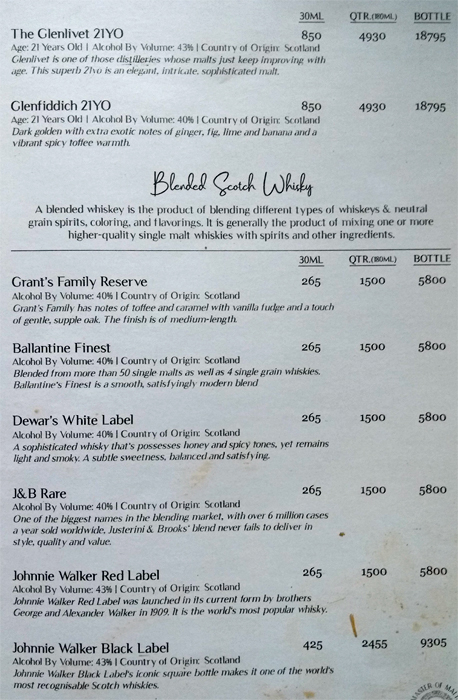 30ML QTR.(180ML) BOTTLE
The Glenlivet 21YO 850 4930 18795
Age: 21 Years Old | Alcohol By Volume: 43% | Country of Origin: Scotland
Glenlivet is one of those distilleries whose malts just keep improving with
age. This superb 21vo is an elegant, intricate, sophisticated malt.
Glenfiddich 21YO 850 4930 18795
Age: 21 Years Old | Alcohol By Volume: 40% | Country of Origin: Scotland
Dark golden with extra exotic notes of ginger, fig, lime and banana and a
vibrant spicy toffee warmth.
Blended Scotch Whisky
A blended whiskey is the product of blending different types of whiskeys & neutral
grain spirits, coloring, and flavorings. It is generally the product of mixing one or more
higher-quality single malt whiskies with spirits and other ingredients.
30ML QTR.(180ML) BOTTLE
Grant's Family Reserve 265 1500 5800
Alcohol By Volume: 40% | Country of Origin: Scotland
Grant's Family has notes of toffee and caramel with vanilla fudge and a touch
of gentle, supple oak. The finish is of medium-length.
Ballantine Finest 265 1500 5800
Alcohol By Volume: 40% | Country of Origin: Scotland
Blended from more than 50 single malts as well as 4 single grain whiskies.
Ballantine's Finest is a smooth, satisfyingly modern blend
Dewar's White Label 265 1500 5800
Alcohol By Volume: 40% | Country of Origin: Scotland
A sophisticated whisky that's possesses honey and spicy tones, yet remains
light and smoky. A subtle sweetness, balanced and satisfying.
J&B Rare 265 1500 5800
Alcohol By Volume: 40% | Country of Origin: Scotland
One of the biggest names in the blending market, with over 6 million cases
a year sold worldwide, Justerini & Brooks' blend never fails to deliver in
style, quality and value.
Johnnie Walker Red Label 265 1500 5800
Alcohol By Volume: 43% | Country of Origin: Scotland
Johnnie Walker Red Label was launched in its current form by brothers
George and Alexander Walker in 1909. It is the world's most popular whisky.
Johnnie Walker Black Label 425 2455 9305
Alcohol By Volume: 43% | Country of Origin: Scotland
Johnnie Walker Black Label's iconic square bottle makes it one of the world's
most recognisable Scotch whiskies.